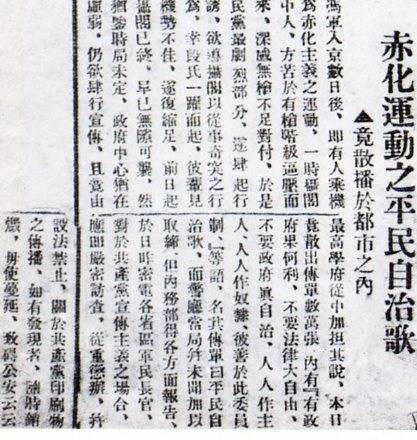 赤化運動之平民自治歌
▲竟散播於都市之內
馮軍入京數日後、即有人乘機
為赤化主義之運動、一時攝閣
中人、方苦於有槍階級逼壓而
來、深感無槍不足對付、於是
民黨最劇烈部分、遂肆起行
誘、欲導攝閣以從事奇突之行
為、幸段氏一躍而起、彼輩見
機勢不佳、遂復縮足、前日起
攝閣已終、早已無隙可襲、然
猶時局未定、政府中心猶在
虛弱、仍欲肆行宣傳、且竟由
最高學府從中加担其說、本日
竟散出傳單數萬張、內有『有政
府果何利、不要法律大自由、
不要政府眞自治、人人作主
人、人人作奴隸、彼善於此委員
制』等語、名其傳單曰平民自
治歌、而警廳當局尚未開加以
取締、但內務部得各方面報告、
於日昨密電各省區軍民長官、
對於共產黨宣傳主義之場合、
應即嚴密訪查、從重懲辦、幷
設法禁止、關於共產黨印刷物
之傳播、如有發現者、隨時銷
燬、毋使蔓延、致碍公安云云